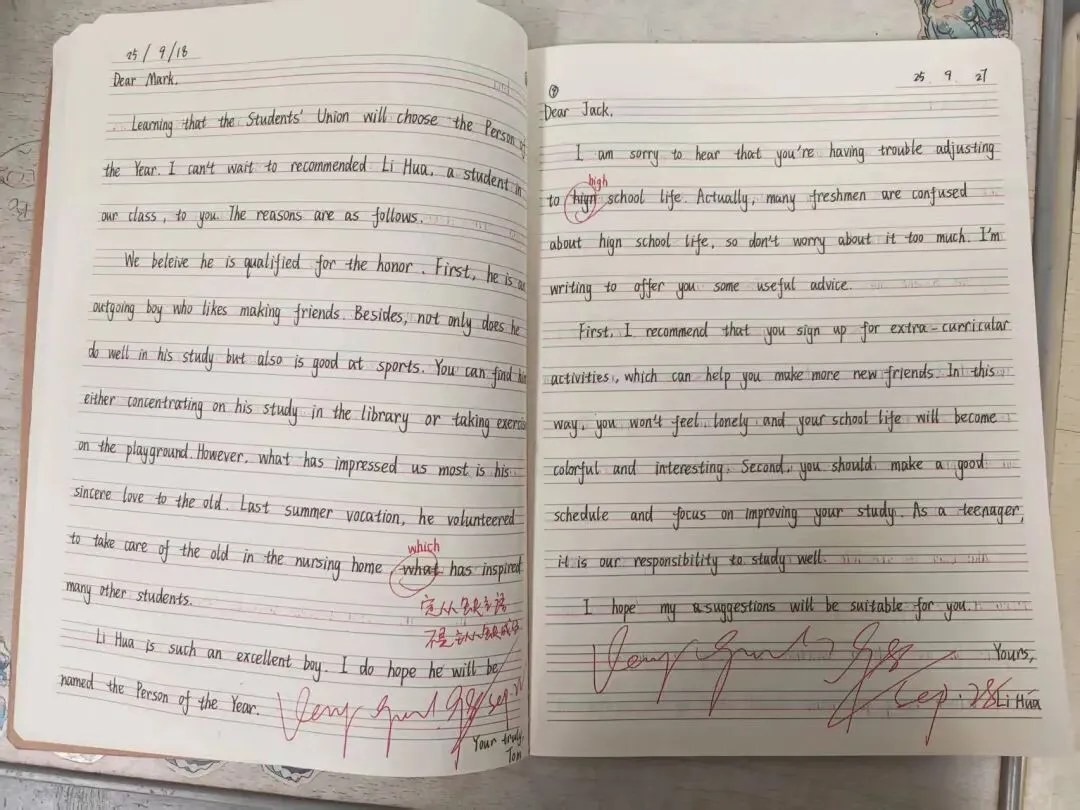 25/9/18
Dear Mark.
Learning that the Students' Union will choose the Person of
the Year. I can't wait to recommended Li Hua, a student in
our class, to you. The reasons are as follows.
We beleive he is qualified for the honor. First, he is an
outgoing boy who likes making friends. Besides, not only does he
do well in his study but also is good at sports. You can find him
either concentrating on his study in the library or taking exercise
on the playground. However, what has impressed us most is his
sincere love to the old. Last summer vocation, he volunteered
which
to take care of the old in the nursing home what has inspired
many other students.
定从缺主语
不是主从缺成分
Li Hua is such an excellent boy. I do hope he will be
named the Person of the Year.
Very good
Sep.
Your truly,
Tom
25 9 27
Dear Jack.
I am sorry to hear that you're having trouble adjusting
high
to hign school life. Actually, many freshmen are confused
about hign school life, so don't worry about it too much. I'm
writing to offer you some useful advice.
First, I recommend that you sign up for extra-curricular
activities, which can help you make more new friends. In this
way, you won't feel lonely and your school life will become
colorful and interesting. Second, you should make a good
schedule and focus on improving your study. As a teenager,
it is our responsibility to study well.
I hope my suggestions will be suitable for you.
Very good
Yours,
Sep. 28
Li Hua